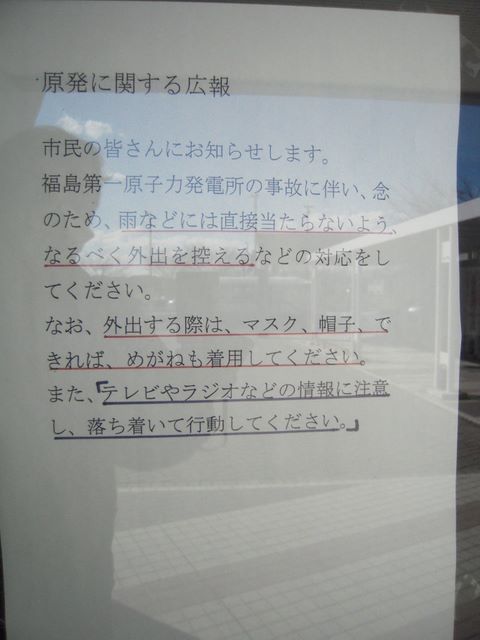 原発に関する広報
市民の皆さんにお知らせします。
福島第一原子力発電所の事故に伴い、念
のため、雨などには直接当たらないよう、
なるべく外出を控えるなどの対応をし
てください。
なお、外出する際は、マスク、帽子、で
きれば、めがねも着用してください。
また、「テレビやラジオなどの情報に注意
し、落ち着いて行動してください。」